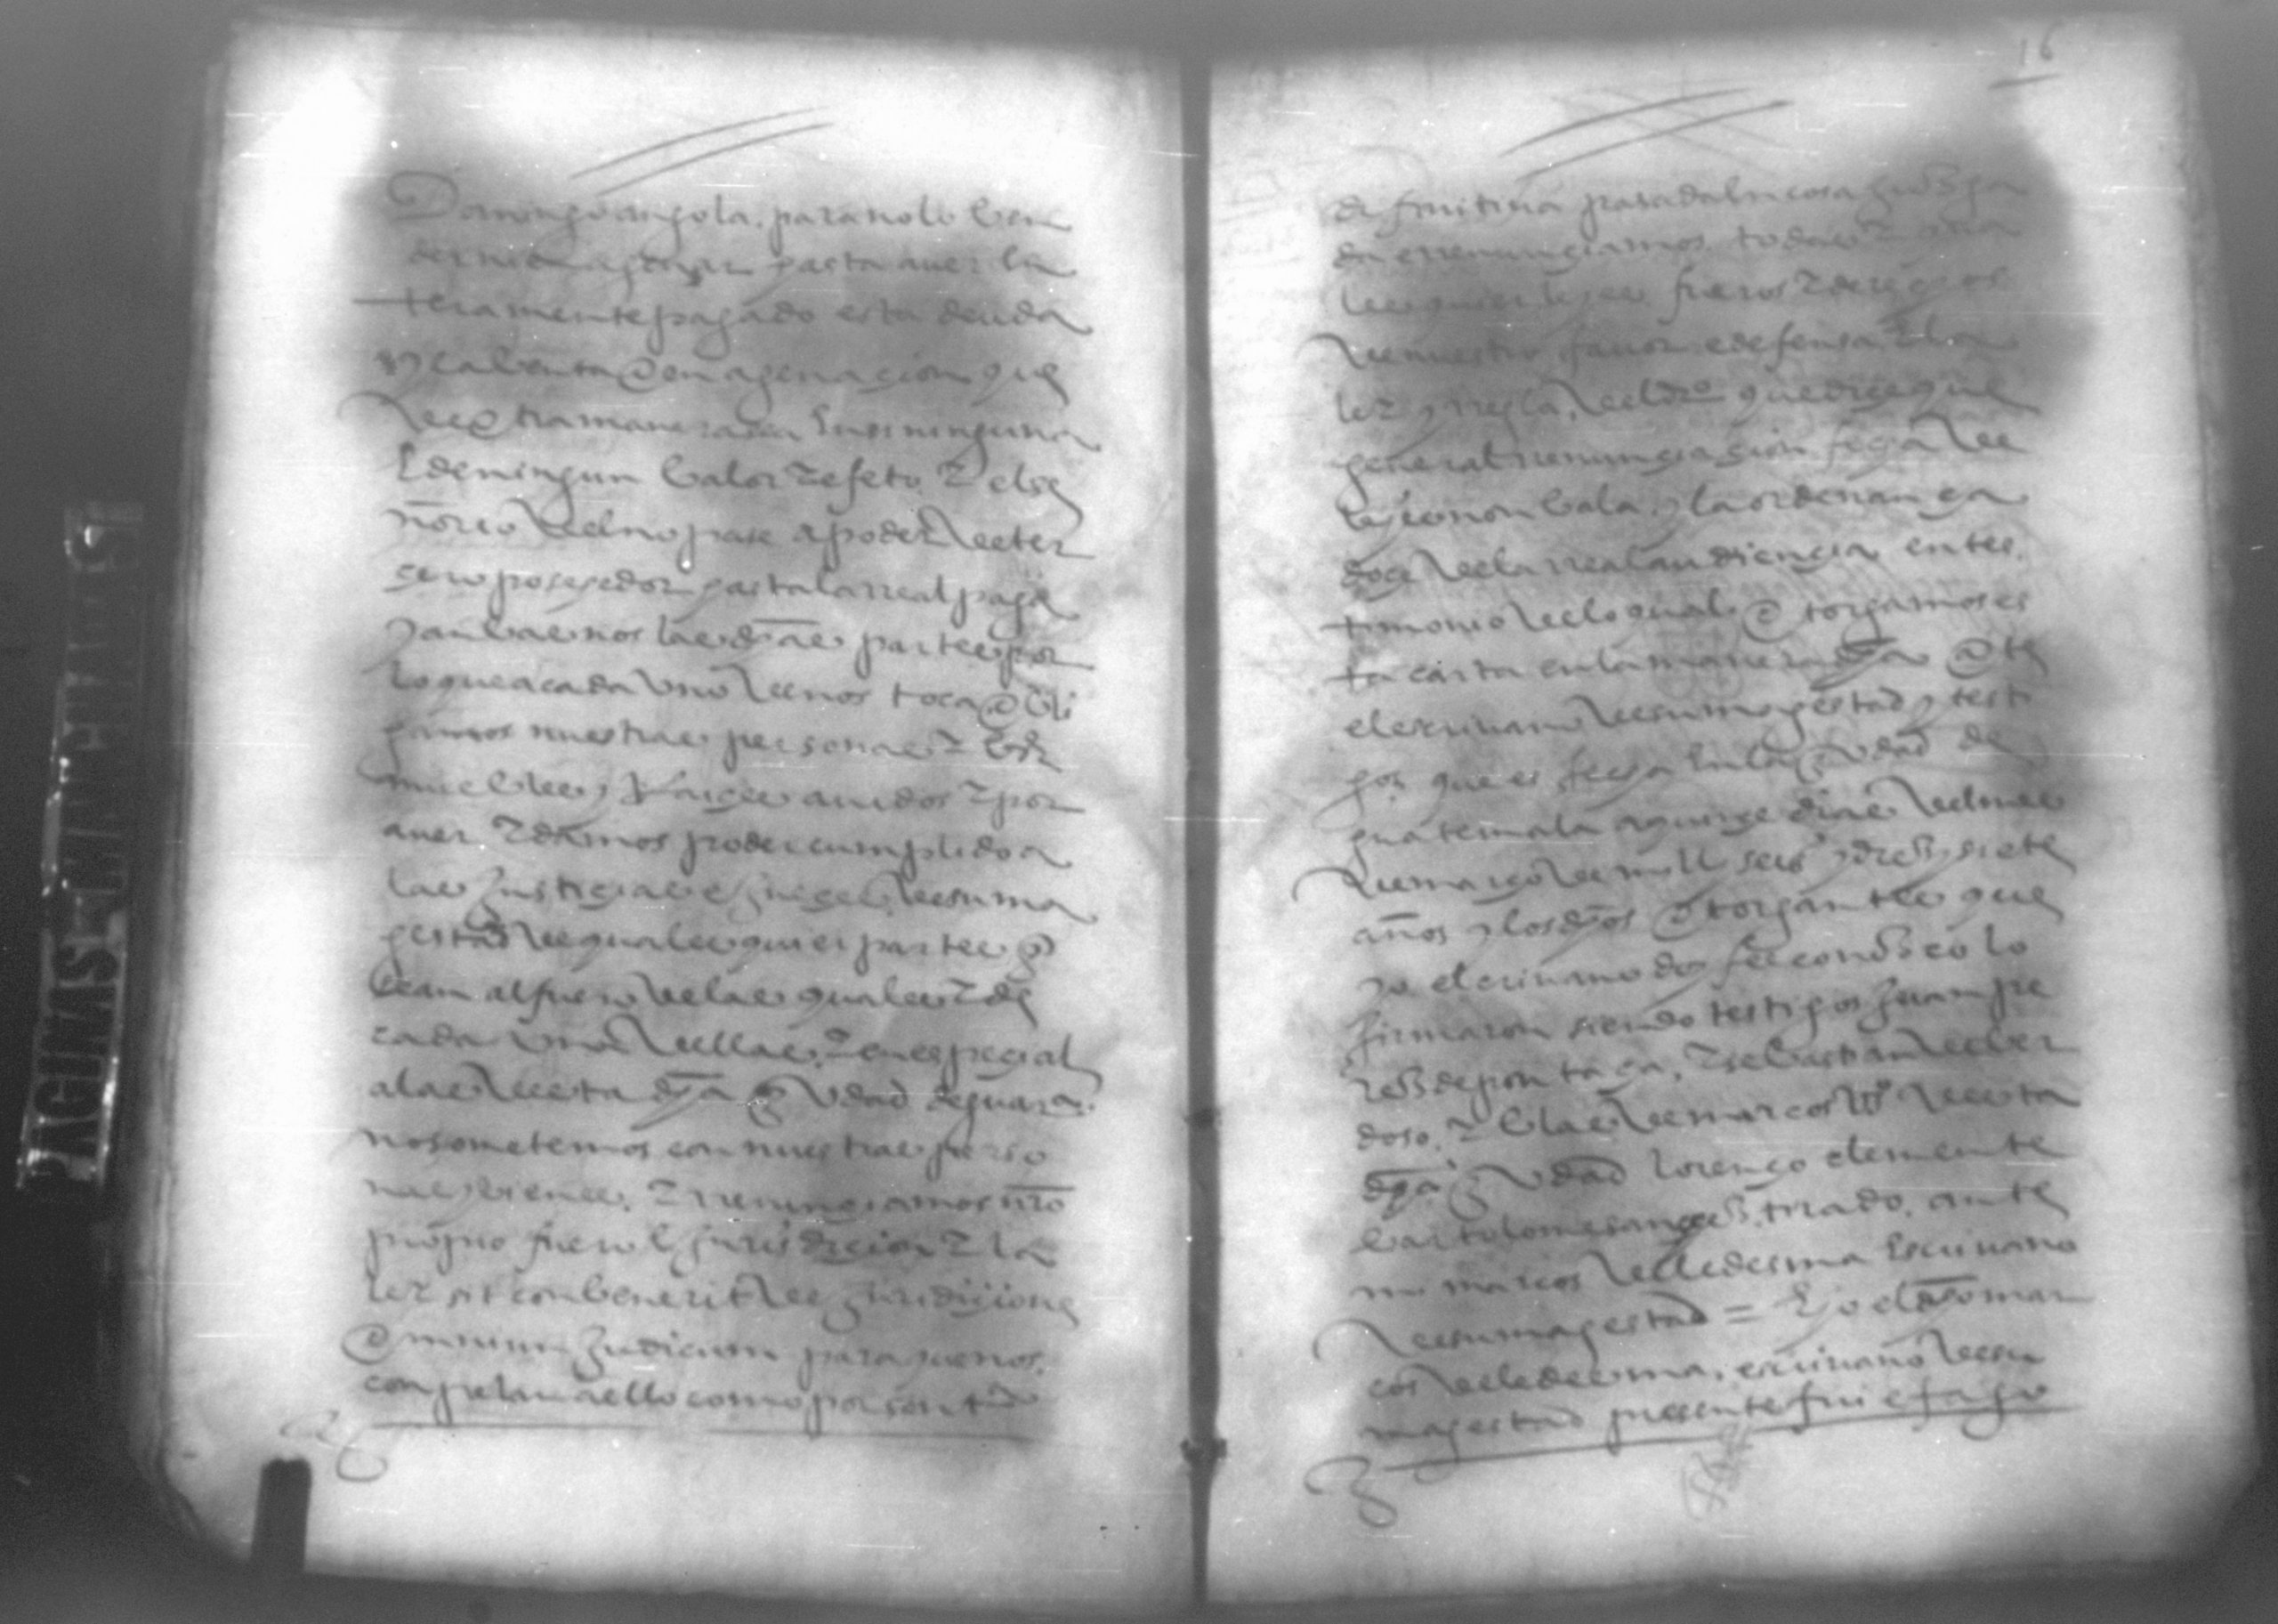 Domingo angola. para no lo ben
der ni enagenar hasta aver en
teramente pagado esta deuda
y la benta o enagenaçion que
de otra manera sea en si ninguna
e de ningun balor y efeto y el se
ñorio del no pase a poder de ter
cero poseedor hasta la rreal paga
y anbas nos las dhas partes por
lo que a cada uno de nos toca obli
gamos nuestras personas y bs
muebles y Raiçes avidos y por
aver y damos poder cumplido a
las justiçias e jueçes de su ma
gestad de qualesquier partes q
sean al fuero de las quales y de
cada una dellas. y en espeçial
a las de esta dha çiudad de guata.
nos ometemos con nuestras perso
nas y bienes. y rrenunçiamos nro
propio fuero e jurisdiçion y la
ley sit conbenerit de juridiçione
omnium judicum para que nos
conpelan a ello como por sentª
16
difinitiva pasada en cosa juzga
da e rrenunçiamos todas
lesquier leyes fueros y derechos
de nuestro favor e defensa y la
ley y rregla del dro que dize que
general rrenunçiaçion fecha de
leyes non bala. y la ordenança
doçe de la rreal audiençia en tes
timonio de lo qual otorgamos es
ta carta en la manera dha ante
el escrivano de su magestad y testi
gos que es fecha en la çiudad de
guatemala a quinze dias del mes
de março de mill seisº y diez y siete
años y los dhos otorgantes que
yo el escrivano doy fee conozco lo
firmaron siendo testigos juan pe
rez de pontaça. y sebastian de ber
doso. y blas de marcos vº de esta
dha çiudad lorenço clemente
bartolome sanchez tirado. ante
mi marcos de ledesma escrivano
de su magestad = E yo el dho mar
cos de ledesma. escrivano de su
magestad presente fui e fago